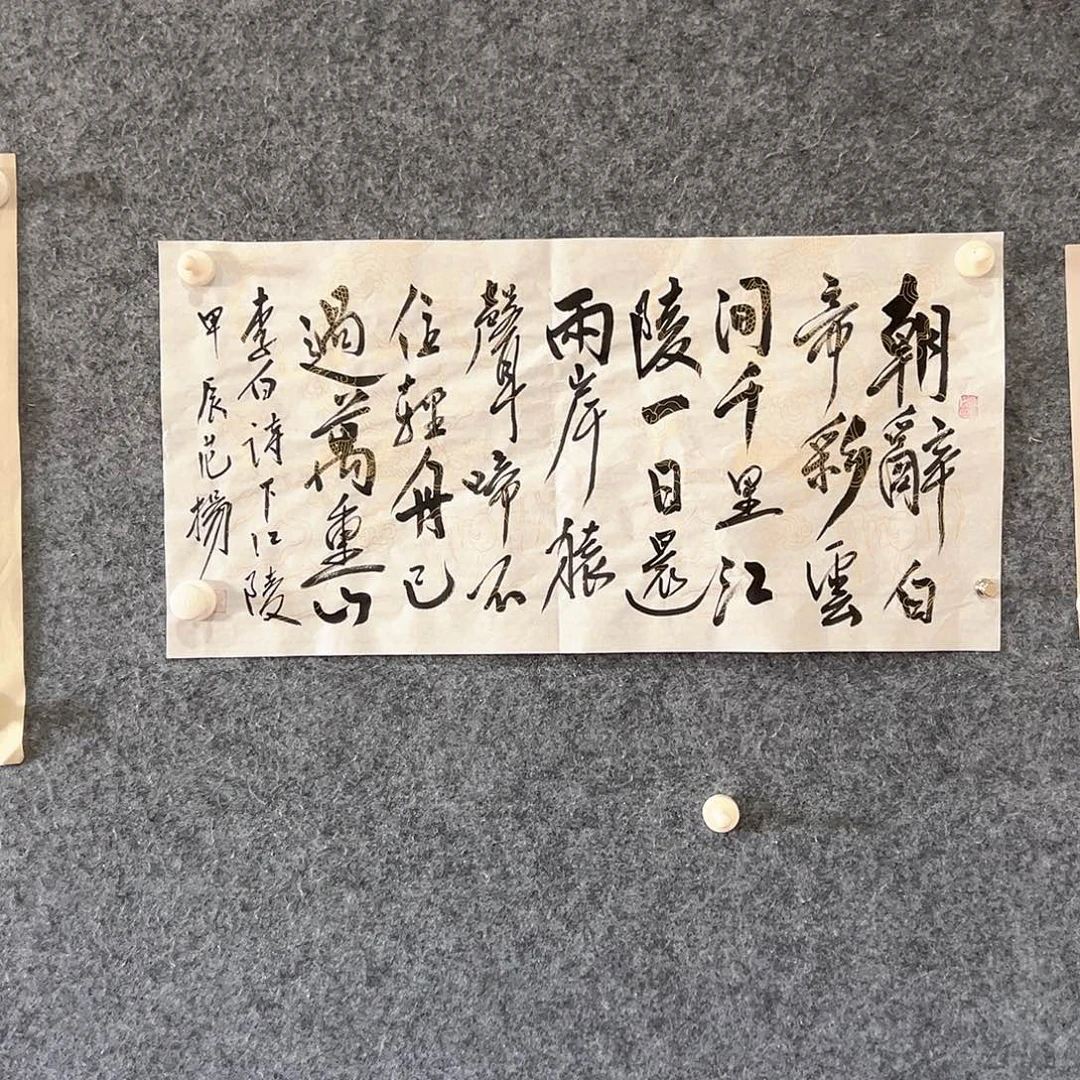 朝辭白
帝彩雲
间千里江
陵一日還
兩岸猿
聲啼不
住輕舟已
過萬重山
李白詩下江陵
甲辰范揚